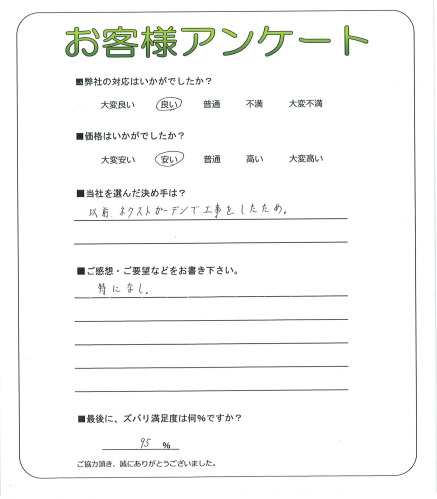 お客様アンケート
■弊社の対応はいかがでしたか？
大変良い 良い 普通 不満 大変不満
■価格はいかがでしたか？
大変安い 安い 普通 高い 大変高い
■当社を選んだ決め手は？
以前、ネクストガーデンで工事をしたため。
■ご感想・ご要望などをお書き下さい。
特になし。
■最後に、ズバリ満足度は何％ですか？
95 ％
ご協力頂き、誠にありがとうございました。